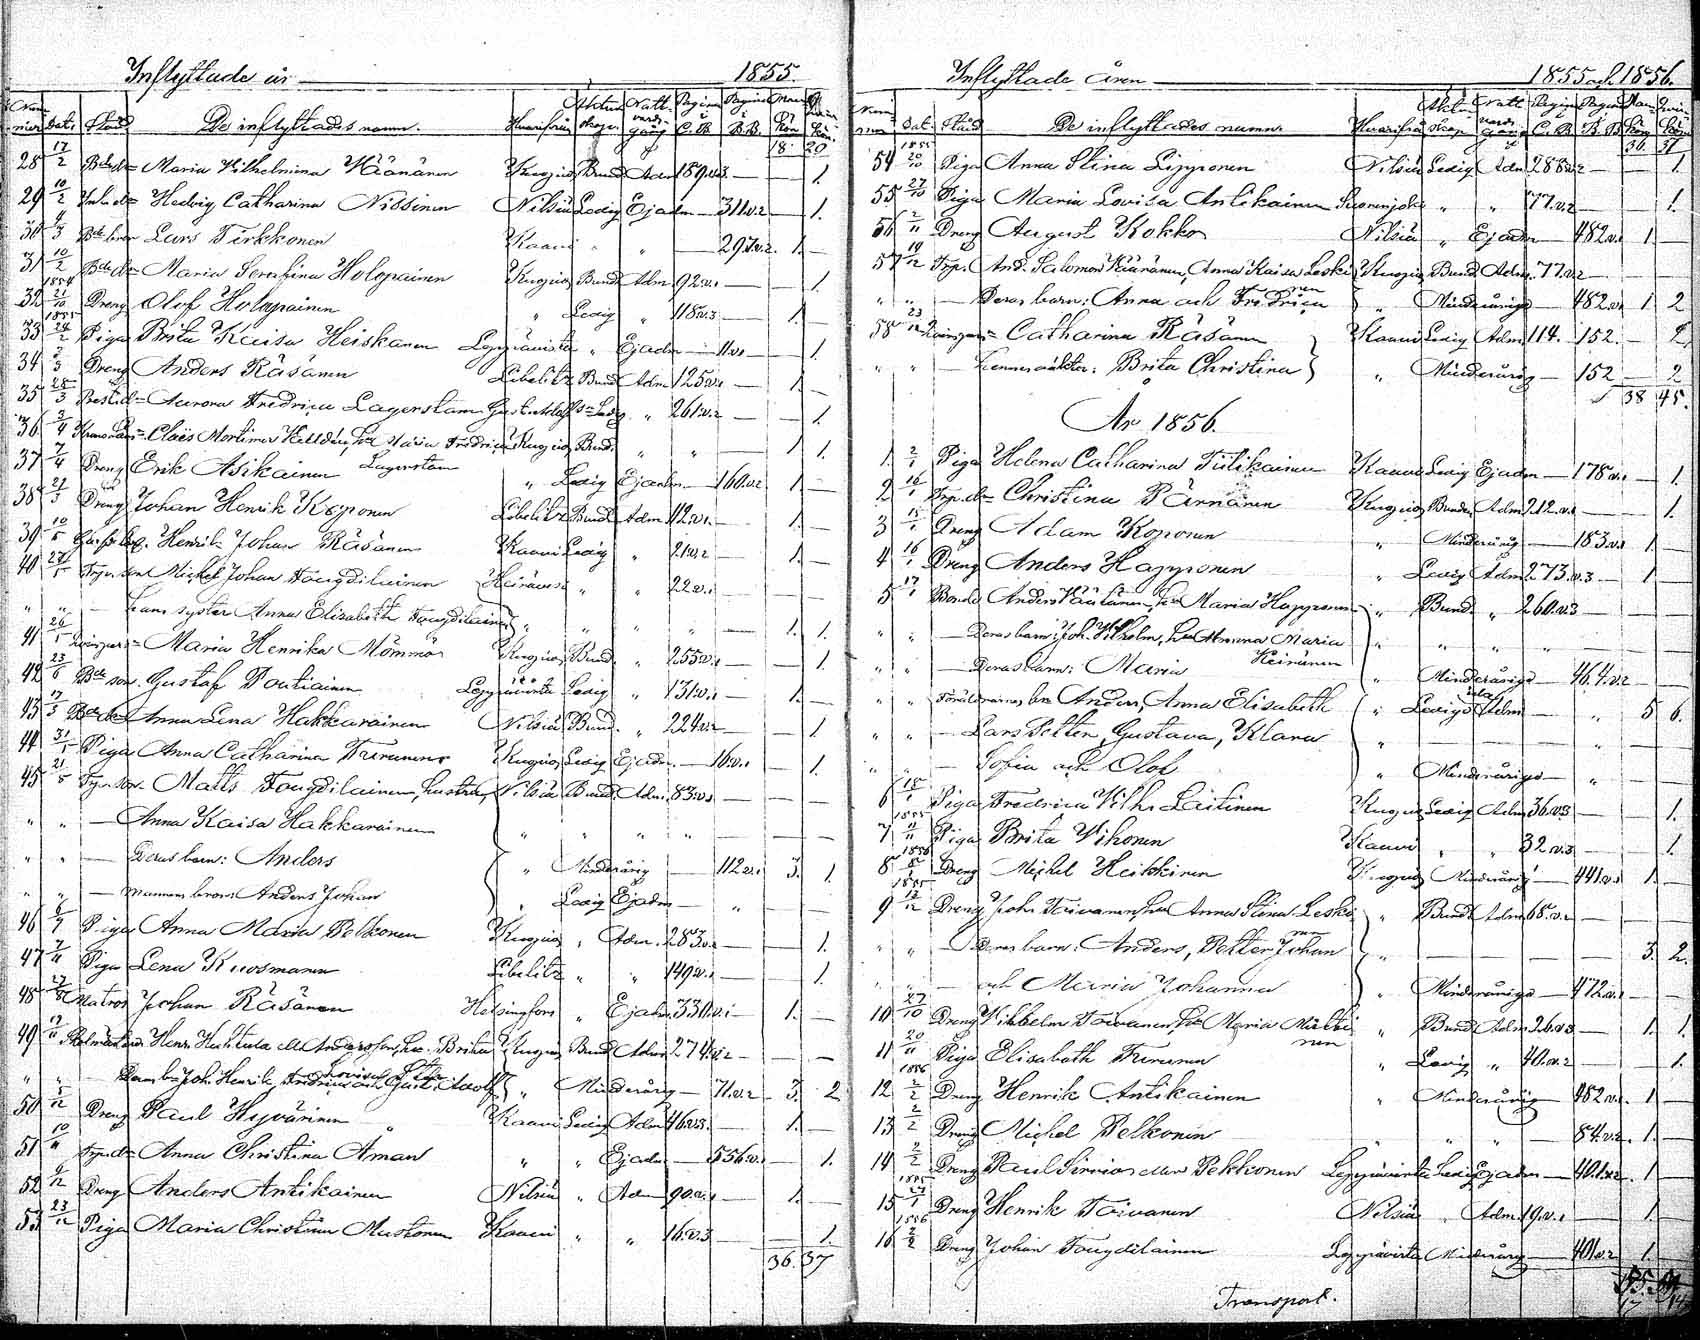 Inflyttade år 1855.
Num mer Dat. Stånd De inflyttades namn. Hvarifrån Äktenskap. Nattvardsgång Pagina i C.B. Pagina i B.B. Mankön Qvinkön.
18. 20
28 17/2 Maria Vilhelmina Väänänen Kuopio Bund. Adm. 189.v.3. — 1.
29 10/2 Hedvig Catharina Nissinen Nilsiä Ledig Ej adm — 311.v.2 — 1.
30 4/3 Lars Tirkkonen Kaavi " " — 297.v.2. 1. —
31 10/2 Maria Serafina Holopainen Kuopio Bund. Adm. 92.v.1 — 1
1854
32 21/10 Dreng Olof Holopainen " Ledig " 118.v.3 — 1. —
1855
33 24/2 Piga Brita Kaisa Heiskanen Leppävirta " Ej adm — 11.v.1 — 1.
34 2/3 Dreng Anders Räsänen Libelitz Bund Adm 125.v.1 — 1.
35 28/3 Aurora Fredrica Lagerstam Ledig " 261.v.2 — — 1.
36 2/4 Claës Mortimer Fredrica Kuopio Bund. " " — 1 1.
Lagerstam
37 7/4 Dreng Erik Asikainen " Ledig Ej adm — 160.v.2 1. —
38 21/3 Dreng Johan Henrik Koponen Libelitz Bund. Adm 112.v.1. — 1. —
39 10/5 Henrik Johan Räsänen Kaavi Ledig " 21.v.2 — 1 —
40 24/5 Michel Johan Fougdilainen " " 22.v.1 — — —
" " — hans syster Anna Elisabeth Fougdilainen " " " " — 1. 1.
41 26/5 Maria Henrika Mömmö Kuopio Bund. " 255.v.1 — — 1
42 23/6 Gustaf Poutiainen Leppävirta Ledig " 131.v.1 — 1. —
43 17/3 Anna Lena Hakkarainen Nilsiä Bund. " 224.v.2 — — 1
44 31/5 Piga Anna Catharina Turunen Kuopio Ledig Ej adm. — 16.v.1 — 1.
45 21/5 Matts Fougdilainen, hustru, Nilsiä Bund. Adm. 83.v.1 — — —
" " — Anna Kaisa Hakkarainen " " " " — — —
" " — Deras barn: Anders " Minderårig — 112.v.1 3. 1.
" " — mannens bror: Anders Johan " Ledig Ej adm — " — —
46 6/7 Piga Anna Maria Pelkonen Kuopio " Adm. 283.v.2 — — 1.
47 Piga Lena Kuosmanen Libelitz " " 149.v.1 — — 1.
48 27/8 Matros Johan Räsänen Helsingfors " Ej adm. 330.v.1 — 1. —
49 Henr. Huhtala Andersson, hu. Brita Kuopio Bund Adm 274.v.2 — — —
Lovisa
" " — Deras b. Joh. Henrik, Fredrica och Gust. Adolf " Minderårig — 71.v.2 3. 2
50 5/12 Dreng Paul Hyvärinen Kaavi Ledig Adm 46.v.3. — 1. —
51 Anna Christina Åman " " Ej adm — 556.v.1 — 1.
52 9/12 Dreng Anders Antikainen Nilsiä " Adm 90.v.1 — 1. —
53 23/12 Piga Maria Christina Mustonen Kaavi " " 16.v.3 — — 1.
36. 37
Inflyttade Åren 1855 och 1856.
Num mer Dat. Stånd De inflyttades namn. Hvarifrån Äktenskap Nattvardsgång Pagina i C.B. Pagina i B.B. Mankön Qvinkön
36. 37
1855
54 20/10 Piga Anna Stina Lipponen Nilsiä Ledig Adm 288.v.2 — — 1.
55 27/10 Piga Maria Lovisa Antikainen Suonenjoki " " 77.v.2 — 1.
56 2/11 Dreng August Kokko Nilsiä " Ej adm — 482.v.1 1 —
57 19/12 And. Salomon Väänänen, Anna Kaisa Leski- Kuopio Bund. Adm. 77.v.2 —
nen
" " — Deras barn: Anna och Fredrica " Minderårige — 482.v.1 1 2
58 23/12 Catharina Räsänen Kaavi Ledig Adm 114. 152. —
" " — hennes oäkta: Brita Christina " Minderårig — 152 — 2
38 45.
År 1856.
1. 2/1 Piga Helena Catharina Tiilikainen Kaavi Ledig Ej adm — 178.v.1 — 1.
2 16/1 Christina Pärnänen Kuopio Bunden Adm 212.v.1 — — 1.
3 15/1 Dreng Adam Koponen " Minderårig — 183.v.1 1. —
4 16/1 Dreng Anders Happonen " Ledig Adm 273.v.3 — 1 —
5 17/1 Bonde Anders hu Maria Happonen " Bund. " 260.v.3 — — —
" " — Deras barn: Joh. Vilhelm, hu Anna Maria " " " " — —
Keinänen
" " — Deras barn: Maria " Minderårige — 464.v.2 — —
" " Anders, Anna Elisabeth " Ledige Adm — " 5 6.
" " — Lars Petter, Gustava, Klara " — — " — —
" " — Sofia och Olof " Minderårige — " — —
6 15/1 Piga Fredrica Vilh. Laitinen Kuopio Ledig Adm 36.v.3 — — 1.
1855
7 11/11 Piga Brita Vihonen Kaavi " " 32.v.3 — — 1.
1856
8 Dreng Michel Heikkinen Kuopio Minderårig — 441.v.1 1. —
1855
9 12/12 Dreng Joh. Toivanen, hu Anna Stina Leski- " Bund. Adm 65.v.2 — —
nen
" " — Deras barn: Anders, Petter Johan " — — — 3. 2.
" " — och Maria Johanna " Minderårige — 472.v.1 — —
10 27/10 Dreng Vilhelm Toivanen, hu Maria Mietti- " Bund Adm 26.v.3 — 1. 1.
nen
11 20/11 Piga Elisabeth Turunen " Ledig " 40.v.2 — — 1.
1856
12 2/2 Dreng Henrik Antikainen " Minderårig — 482.v.1 1 —
13 2/2 Dreng Michel Pelkonen " " " 84.v.2. 1. —
14 2/2 Dreng Paul Sirviö eller Pekkonen Leppävirta Ledig Ej adm — 401.v.2. 1 —
1855
15 Dreng Henrik Toivanen Nilsiä " Adm 19.v.1 — 1. —
1856
16 2/2 Dreng Johan Fougdilainen Leppävirta Minderårig — 401.v.2 1. —
Transport.